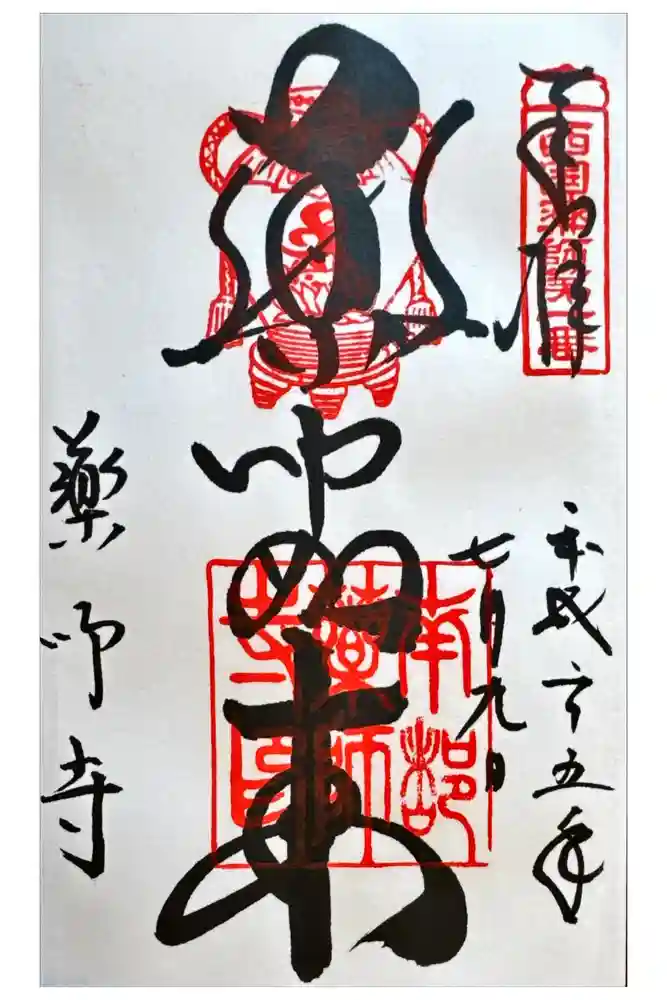 奉拝
西國薬師第一番
平成二十五年
七月九日
薬師如来
南都
薬師
寺印
薬師寺